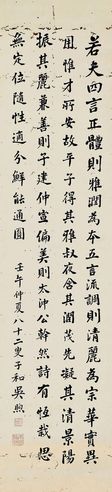 若夫四言正體則雅潤為本五言流調則清麗為宗華實異
用惟才所安故平子得其雅叔夜含其潤茂先凝其清景陽
振其麗兼善則子建仲宣偏美則太沖公幹然詩有恆裁思
無定位隨性適分鮮能通圓
壬午仲夏八十二叟子和吳煦